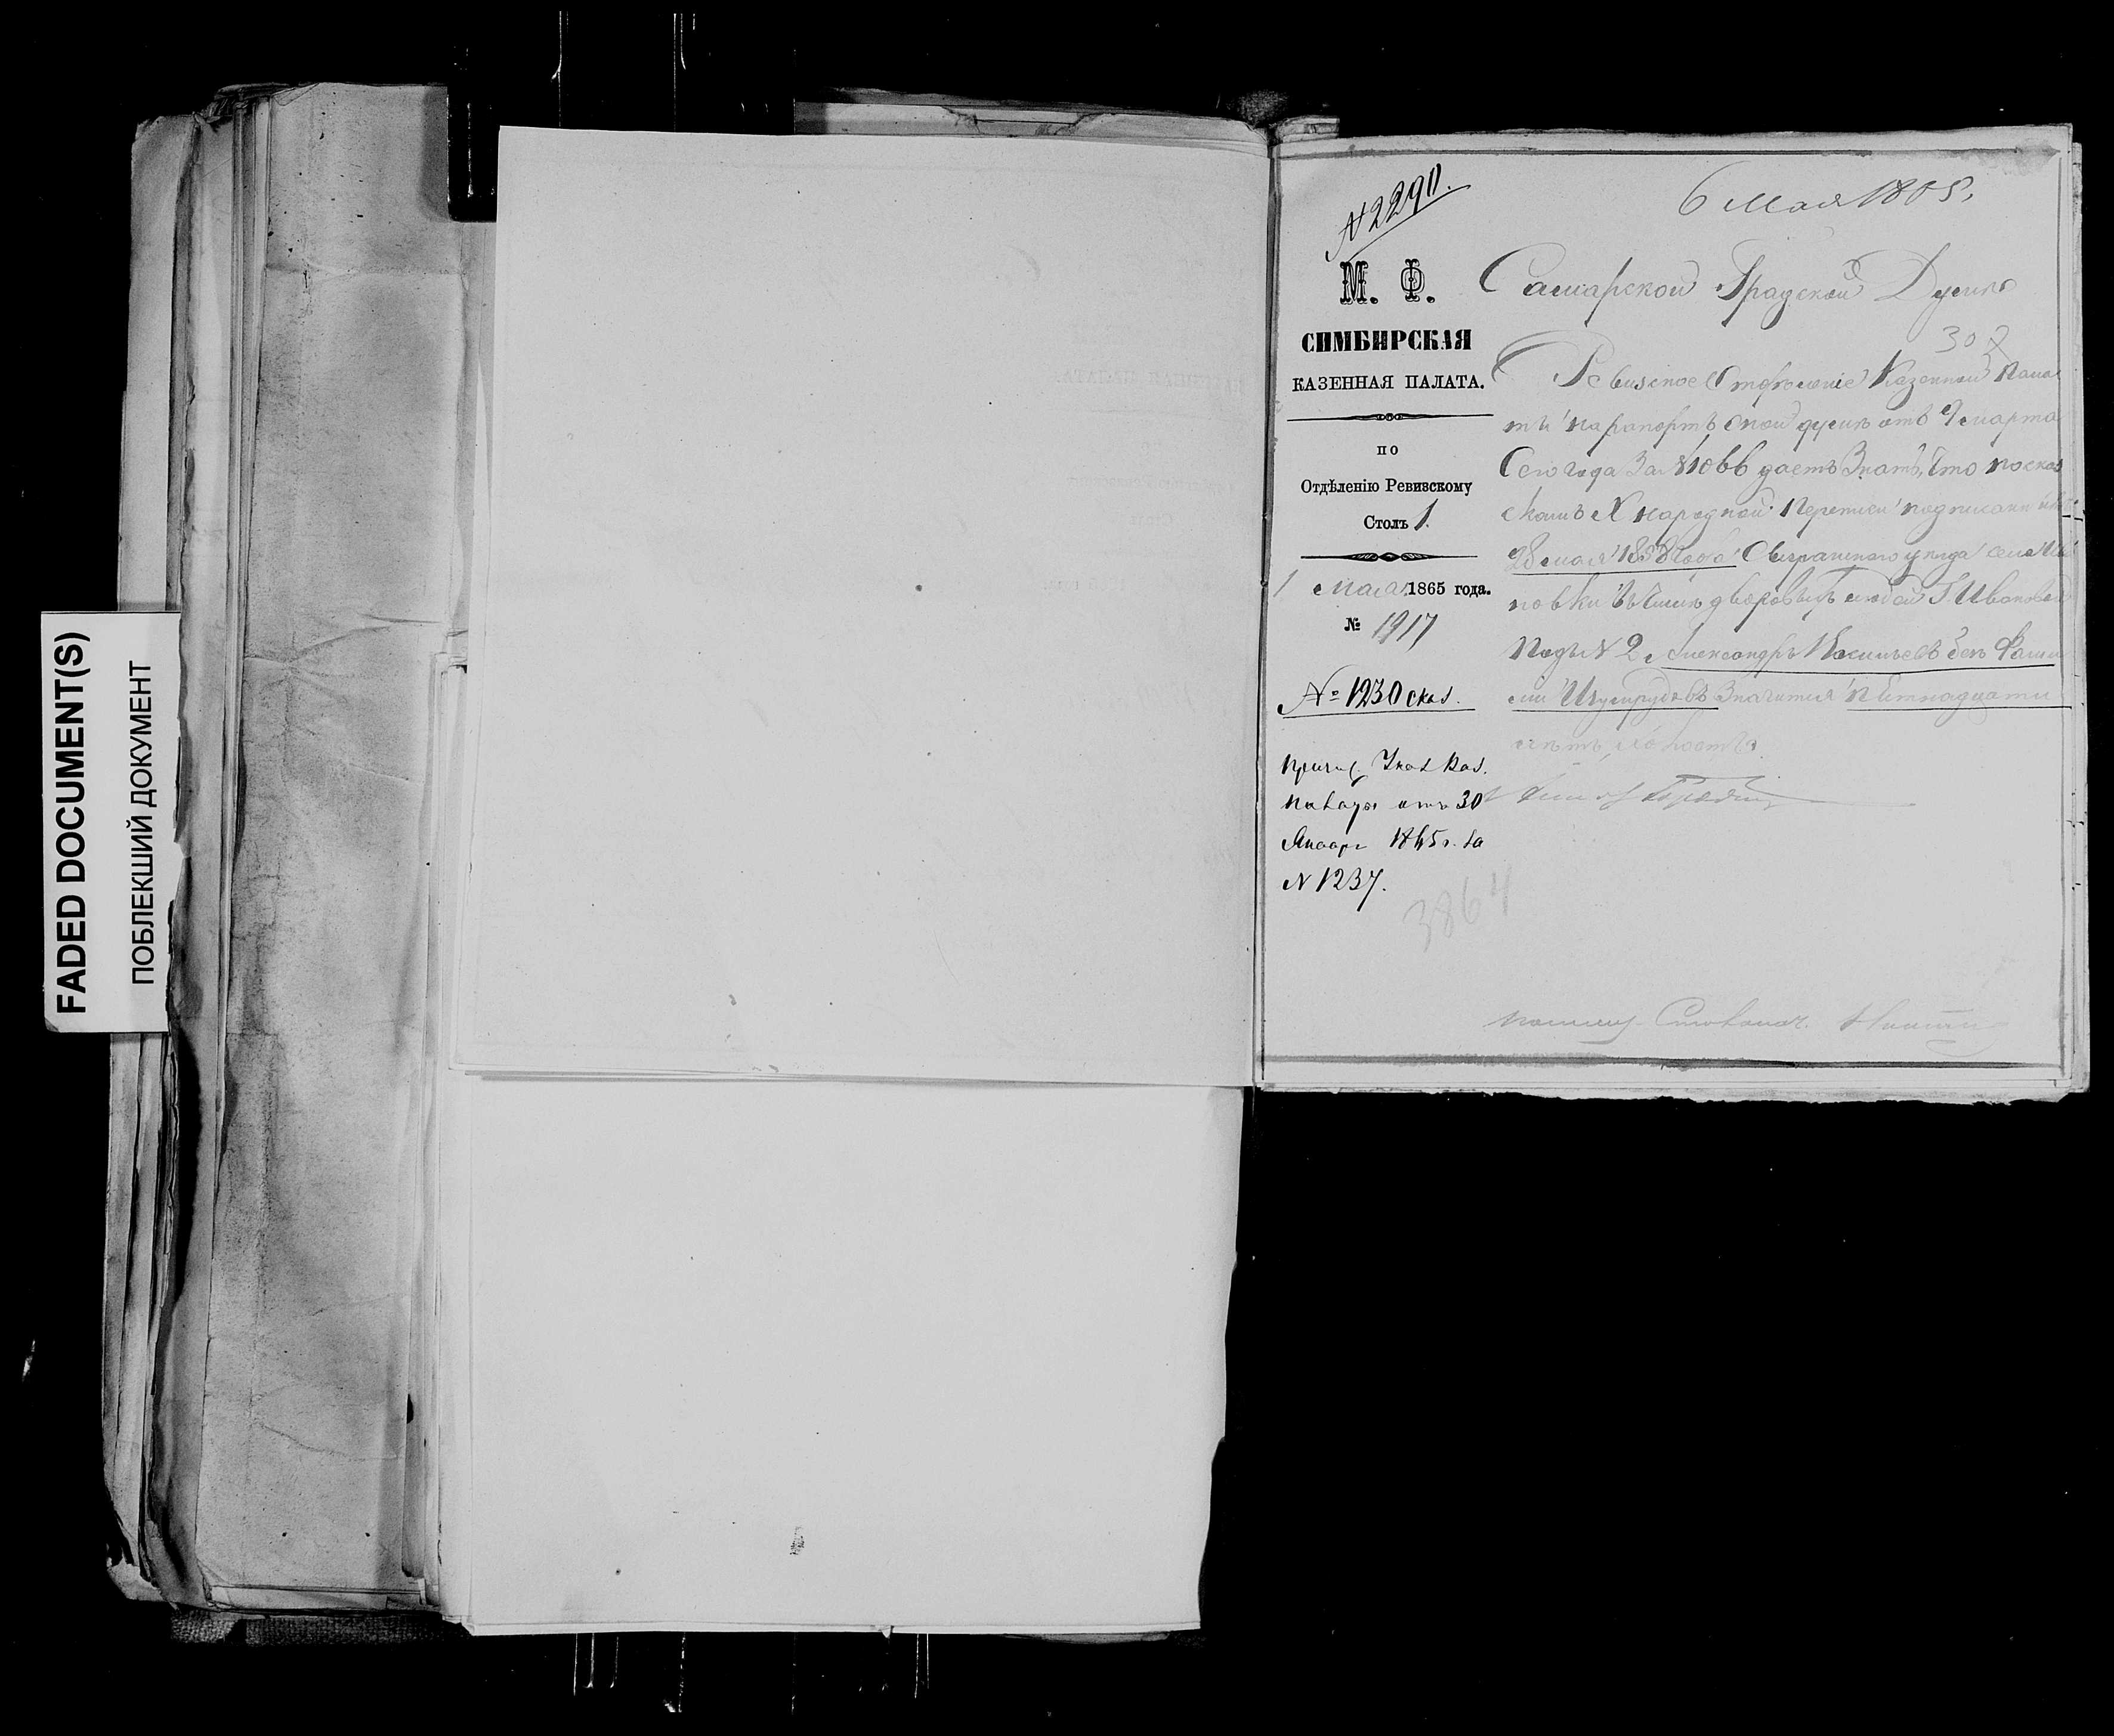 FADED DOCUMENT(S)
ПОБЛЕКШИЙ ДОКУМЕНТ
N 2290.
6 Мая 1865.
М. Ф.
СИМБИРСКАЯ
КАЗЕННАЯ ПАЛАТА.
по
Отдѣленію Ревизскому
Столъ 1.
1 Мая 1865 года.
№ 1917
№ 1230 скал.
отъ 30
1865 г. за
N 1237.
3864
Самарской Градской Думѣ
307
Ревизское Отдѣленіе Казенной Пала
ты на рапортъ оной думы отъ 9 марта
Сего года За N 1066 даетъ Знать, что по сказ
камъ X народной Переписи подписанной
28 мая 1858 года Сызранскаго уѣзда села
новки въ числѣ дворовыхъ людей Г. Ивановой
Подъ N 2 Александръ Васильевъ безъ Фами
ліи Изумрудовъ Значится пятнадцати
лѣтъ, холостъ.